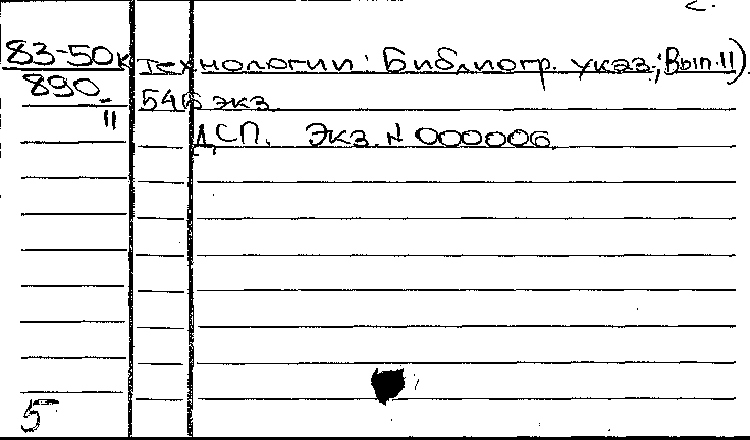 с.
83-50к технологии: Библиогр. указ.; Вып. 11)
890 546 экз.
11
ДСП. Экз. № 000006.
5